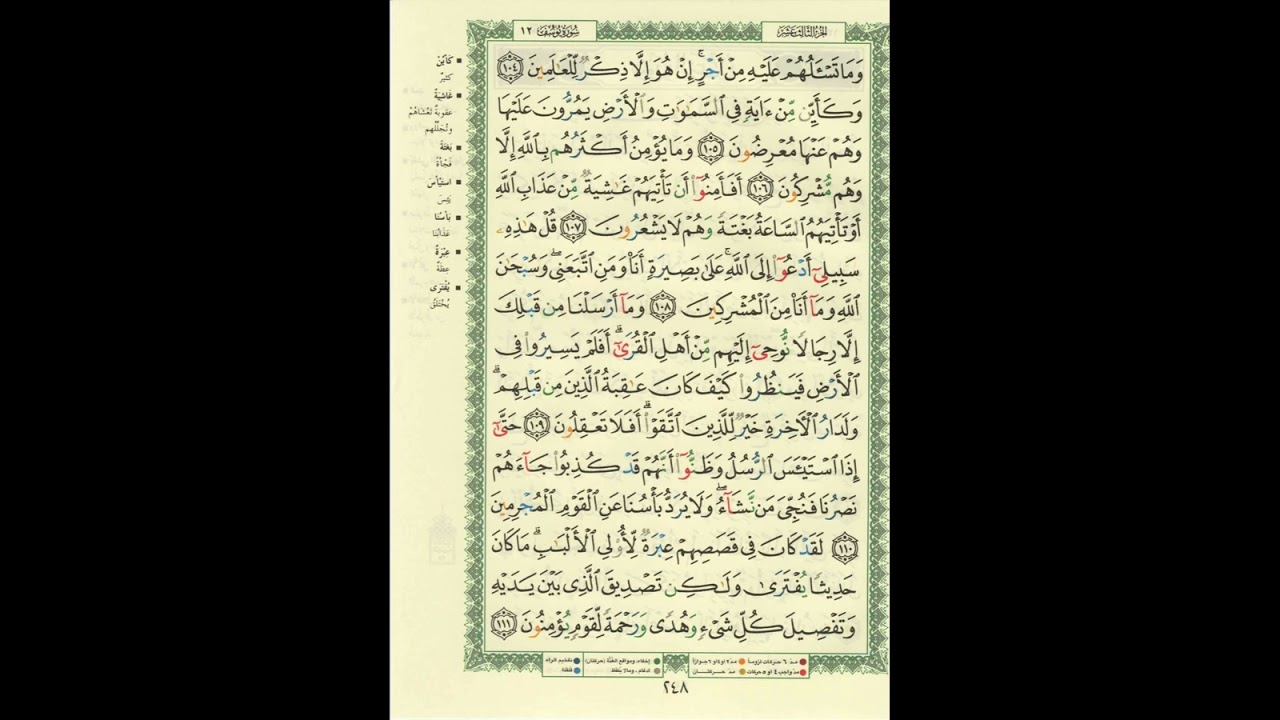 الجزء الثالث عشر
سورة يوسف ١٢
وَمَا تَسْـَٔلُهُمْ عَلَيْهِ مِنْ أَجْرٍ ۚ إِنْ هُوَ إِلَّا ذِكْرٌ لِّلْعَـٰلَمِينَ ١٠٤
وَكَأَيِّن مِّنْ ءَايَةٍ فِى ٱلسَّمَـٰوَٰتِ وَٱلْأَرْضِ يَمُرُّونَ عَلَيْهَا
وَهُمْ عَنْهَا مُعْرِضُونَ ١٠٥ وَمَا يُؤْمِنُ أَكْثَرُهُم بِٱللَّهِ إِلَّا
وَهُم مُّشْرِكُونَ ١٠٦ أَفَأَمِنُوٓا۟ أَن تَأْتِيَهُمْ غَـٰشِيَةٌ مِّنْ عَذَابِ ٱللَّهِ
أَوْ تَأْتِيَهُمُ ٱلسَّاعَةُ بَغْتَةً وَهُمْ لَا يَشْعُرُونَ ١٠٧ قُلْ هَـٰذِهِۦ
سَبِيلِىٓ أَدْعُوٓا۟ إِلَى ٱللَّهِ ۚ عَلَىٰ بَصِيرَةٍ أَنَا۠ وَمَنِ ٱتَّبَعَنِى ۖ وَسُبْحَـٰنَ
ٱللَّهِ وَمَآ أَنَا۠ مِنَ ٱلْمُشْرِكِينَ ١٠٨ وَمَآ أَرْسَلْنَا مِن قَبْلِكَ
إِلَّا رِجَالًا نُّوحِىٓ إِلَيْهِم مِّنْ أَهْلِ ٱلْقُرَىٰٓ ۗ أَفَلَمْ يَسِيرُوا۟ فِى
ٱلْأَرْضِ فَيَنظُرُوا۟ كَيْفَ كَانَ عَـٰقِبَةُ ٱلَّذِينَ مِن قَبْلِهِمْ ۗ
وَلَدَارُ ٱلْـَٔاخِرَةِ خَيْرٌ لِّلَّذِينَ ٱتَّقَوْا۟ ۗ أَفَلَا تَعْقِلُونَ ١٠٩ حَتَّىٰٓ
إِذَا ٱسْتَيْـَٔسَ ٱلرُّسُلُ وَظَنُّوٓا۟ أَنَّهُمْ قَدْ كُذِبُوا۟ جَآءَهُمْ
نَصْرُنَا فَنُجِّىَ مَن نَّشَآءُ ۖ وَلَا يُرَدُّ بَأْسُنَا عَنِ ٱلْقَوْمِ ٱلْمُجْرِمِينَ
١١٠ لَقَدْ كَانَ فِى قَصَصِهِمْ عِبْرَةٌ لِّأُو۟لِى ٱلْأَلْبَـٰبِ ۗ مَا كَانَ
حَدِيثًا يُفْتَرَىٰ وَلَـٰكِن تَصْدِيقَ ٱلَّذِى بَيْنَ يَدَيْهِ
وَتَفْصِيلَ كُلِّ شَىْءٍ وَهُدًى وَرَحْمَةً لِّقَوْمٍ يُؤْمِنُونَ ١١١
كَأَيِّنْ
كثيرٌ
غَاشِيَةٌ
عقوبةٌ تَغْشاهُمْ
وتُجَلِّلُهم
بَغْتَةً
فَجْأةً
اسْتَيْأَسَ
يَئِسَ
بَأْسُنَا
عَذَابُنَا
عِبْرَةٌ
عِظَةٌ
يُفْتَرَى
يُخْتَلَقُ
مدّ ٦ حركات لزوماً
مدّ ٢ أو ٤ أو ٦ جوازاً
مدّ واجب ٤ أو ٥ حركات
مدّ حركتان
إخفاء، ومواقع الغُنَّة (حركتان)
ادغام، وما لا يُلفَظ
تفخيم الراء
قلقلة
٢٤٨